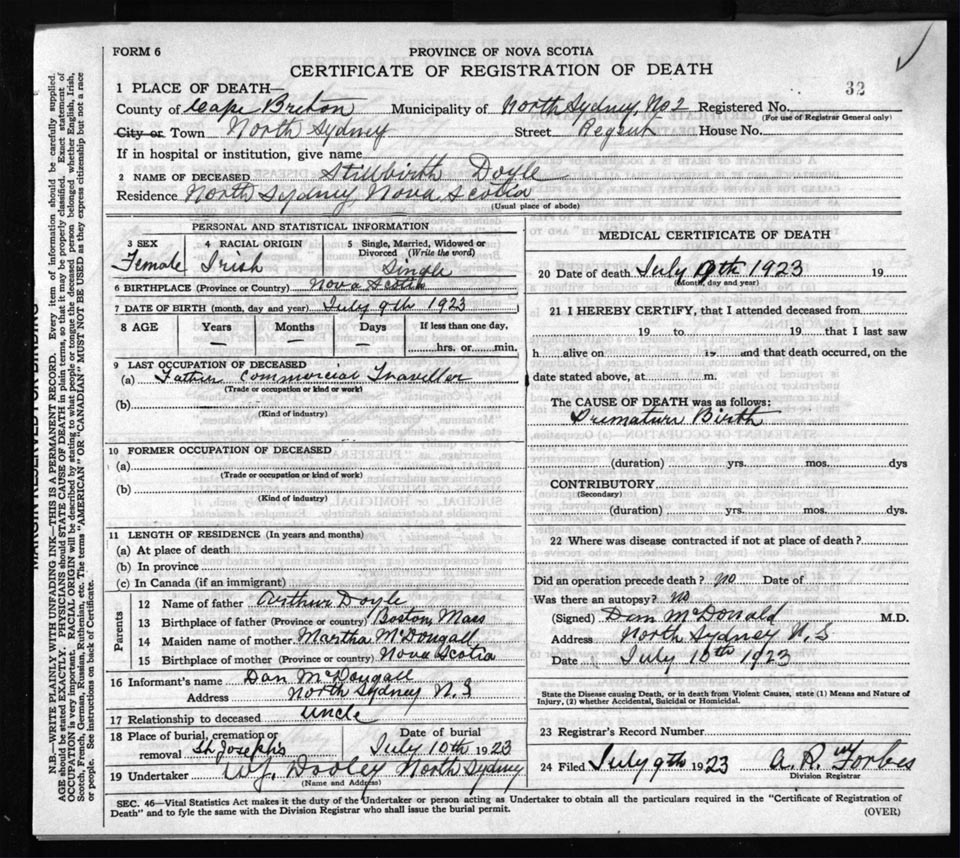 FORM 6
PROVINCE OF NOVA SCOTIA
CERTIFICATE OF REGISTRATION OF DEATH
32
1 PLACE OF DEATH—
County of Cape Breton Municipality of North Sydney, No 2 Registered No.
(For use of Registrar General only)
City or Town North Sydney Street Regent House No.
If in hospital or institution, give name
2 NAME OF DECEASED Stillbirth Doyle
Residence North Sydney, Nova Scotia
(Usual place of abode)
PERSONAL AND STATISTICAL INFORMATION
3 SEX 4 RACIAL ORIGIN 5 Single, Married, Widowed or Divorced (Write the word)
Female Irish Single
6 BIRTHPLACE (Province or Country) Nova Scotia
7 DATE OF BIRTH (month, day and year) July 9th 1923
8 AGE Years Months Days If less than one day,
— — — hrs. or min.
9 LAST OCCUPATION OF DECEASED
(a) Father Commercial Traveller
(Trade or occupation or kind or work)
(b)
(Kind of industry)
10 FORMER OCCUPATION OF DECEASED
(a)
(Trade or occupation or kind of work)
(b)
(Kind of industry)
11 LENGTH OF RESIDENCE (In years and months)
(a) At place of death
(b) In province
(c) In Canada (if an immigrant)
Parents
12 Name of father Arthur Doyle
13 Birthplace of father (Province or country) Boston, Mass
14 Maiden name of mother Martha McDougall
15 Birthplace of mother (Province or country) Nova Scotia
16 Informant's name Dan McDougall
Address North Sydney N.S
17 Relationship to deceased uncle
18 Place of burial, cremation or removal St Joseph's Date of burial July 10th 1923
19 Undertaker W.J. Dooley North Sydney
(Name and Address)
MEDICAL CERTIFICATE OF DEATH
20 Date of death July 9th 1923 19
(Month, day and year)
21 I HEREBY CERTIFY, that I attended deceased from
19 to 19 that I last saw
h alive on 19 and that death occurred, on the
date stated above, at m.
The CAUSE OF DEATH was as follows:
Premature Birth
(duration) yrs. mos. dys
CONTRIBUTORY
(Secondary)
(duration) yrs. mos. dys.
22 Where was disease contracted if not at place of death?
Did an operation precede death? no Date of
Was there an autopsy? no
(Signed) Dan McDonald M.D.
Address North Sydney N.S
Date July 10th 1923
State the Disease causing Death, or in death from Violent Causes, state (1) Means and Nature of
Injury, (2) whether Accidental, Suicidal or Homicidal.
23 Registrar's Record Number
24 Filed July 9th 1923 A. R. Forbes
Division Registrar
SEC. 46—Vital Statistics Act makes it the duty of the Undertaker or person acting as Undertaker to obtain all the particulars required in the "Certificate of Registration of
Death" and to fyle the same with the Division Registrar who shall issue the burial permit.
(OVER)
MARGIN RESERVED FOR BINDING
N.B.—WRITE PLAINLY WITH UNFADING INK—THIS IS A PERMANENT RECORD. Every item of information should be carefully supplied.
AGE should be stated EXACTLY. PHYSICIANS should STATE CAUSE OF DEATH in plain terms, so that it may be properly classified. Exact statement of
OCCUPATION is very important. RACIAL ORIGIN will be described by stating to what people or tongue the deceased person belonged whether English, Irish,
Scotch, French, German, Russian, Ruthenian, etc. The terms "AMERICAN" OR "CANADIAN" MUST NOT BE USED as they express citizenship but not a race
or people. See instructions on back of Certificate.